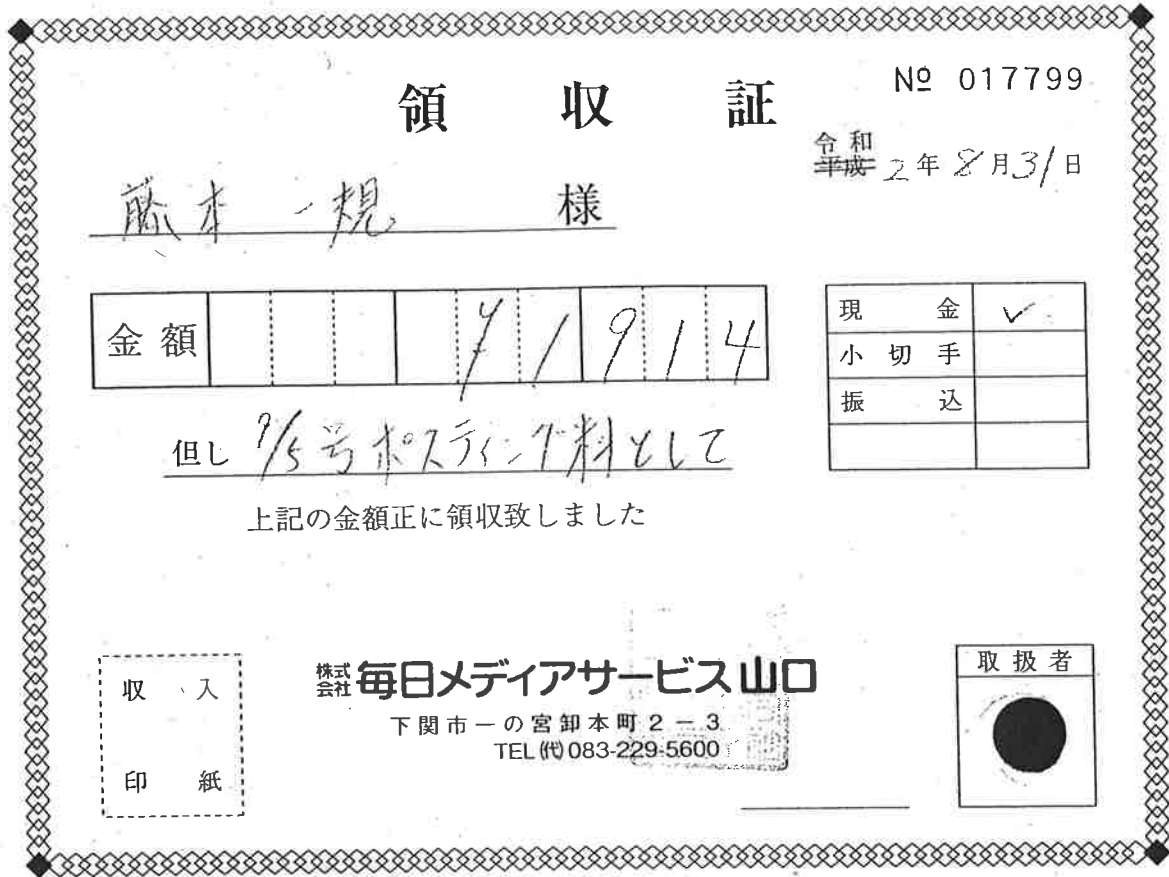 領収証
№ 017799
令和
平成 2年8月31日
藤本一規 様
金額 ¥1914
現金 ✓
小切手
振込
但し 7/5号ポスティング料として
上記の金額正に領収致しました
収入
印紙
株式会社 毎日メディアサービス山口
下関市一の宮卸本町2-3
TEL(代)083-229-5600
取扱者